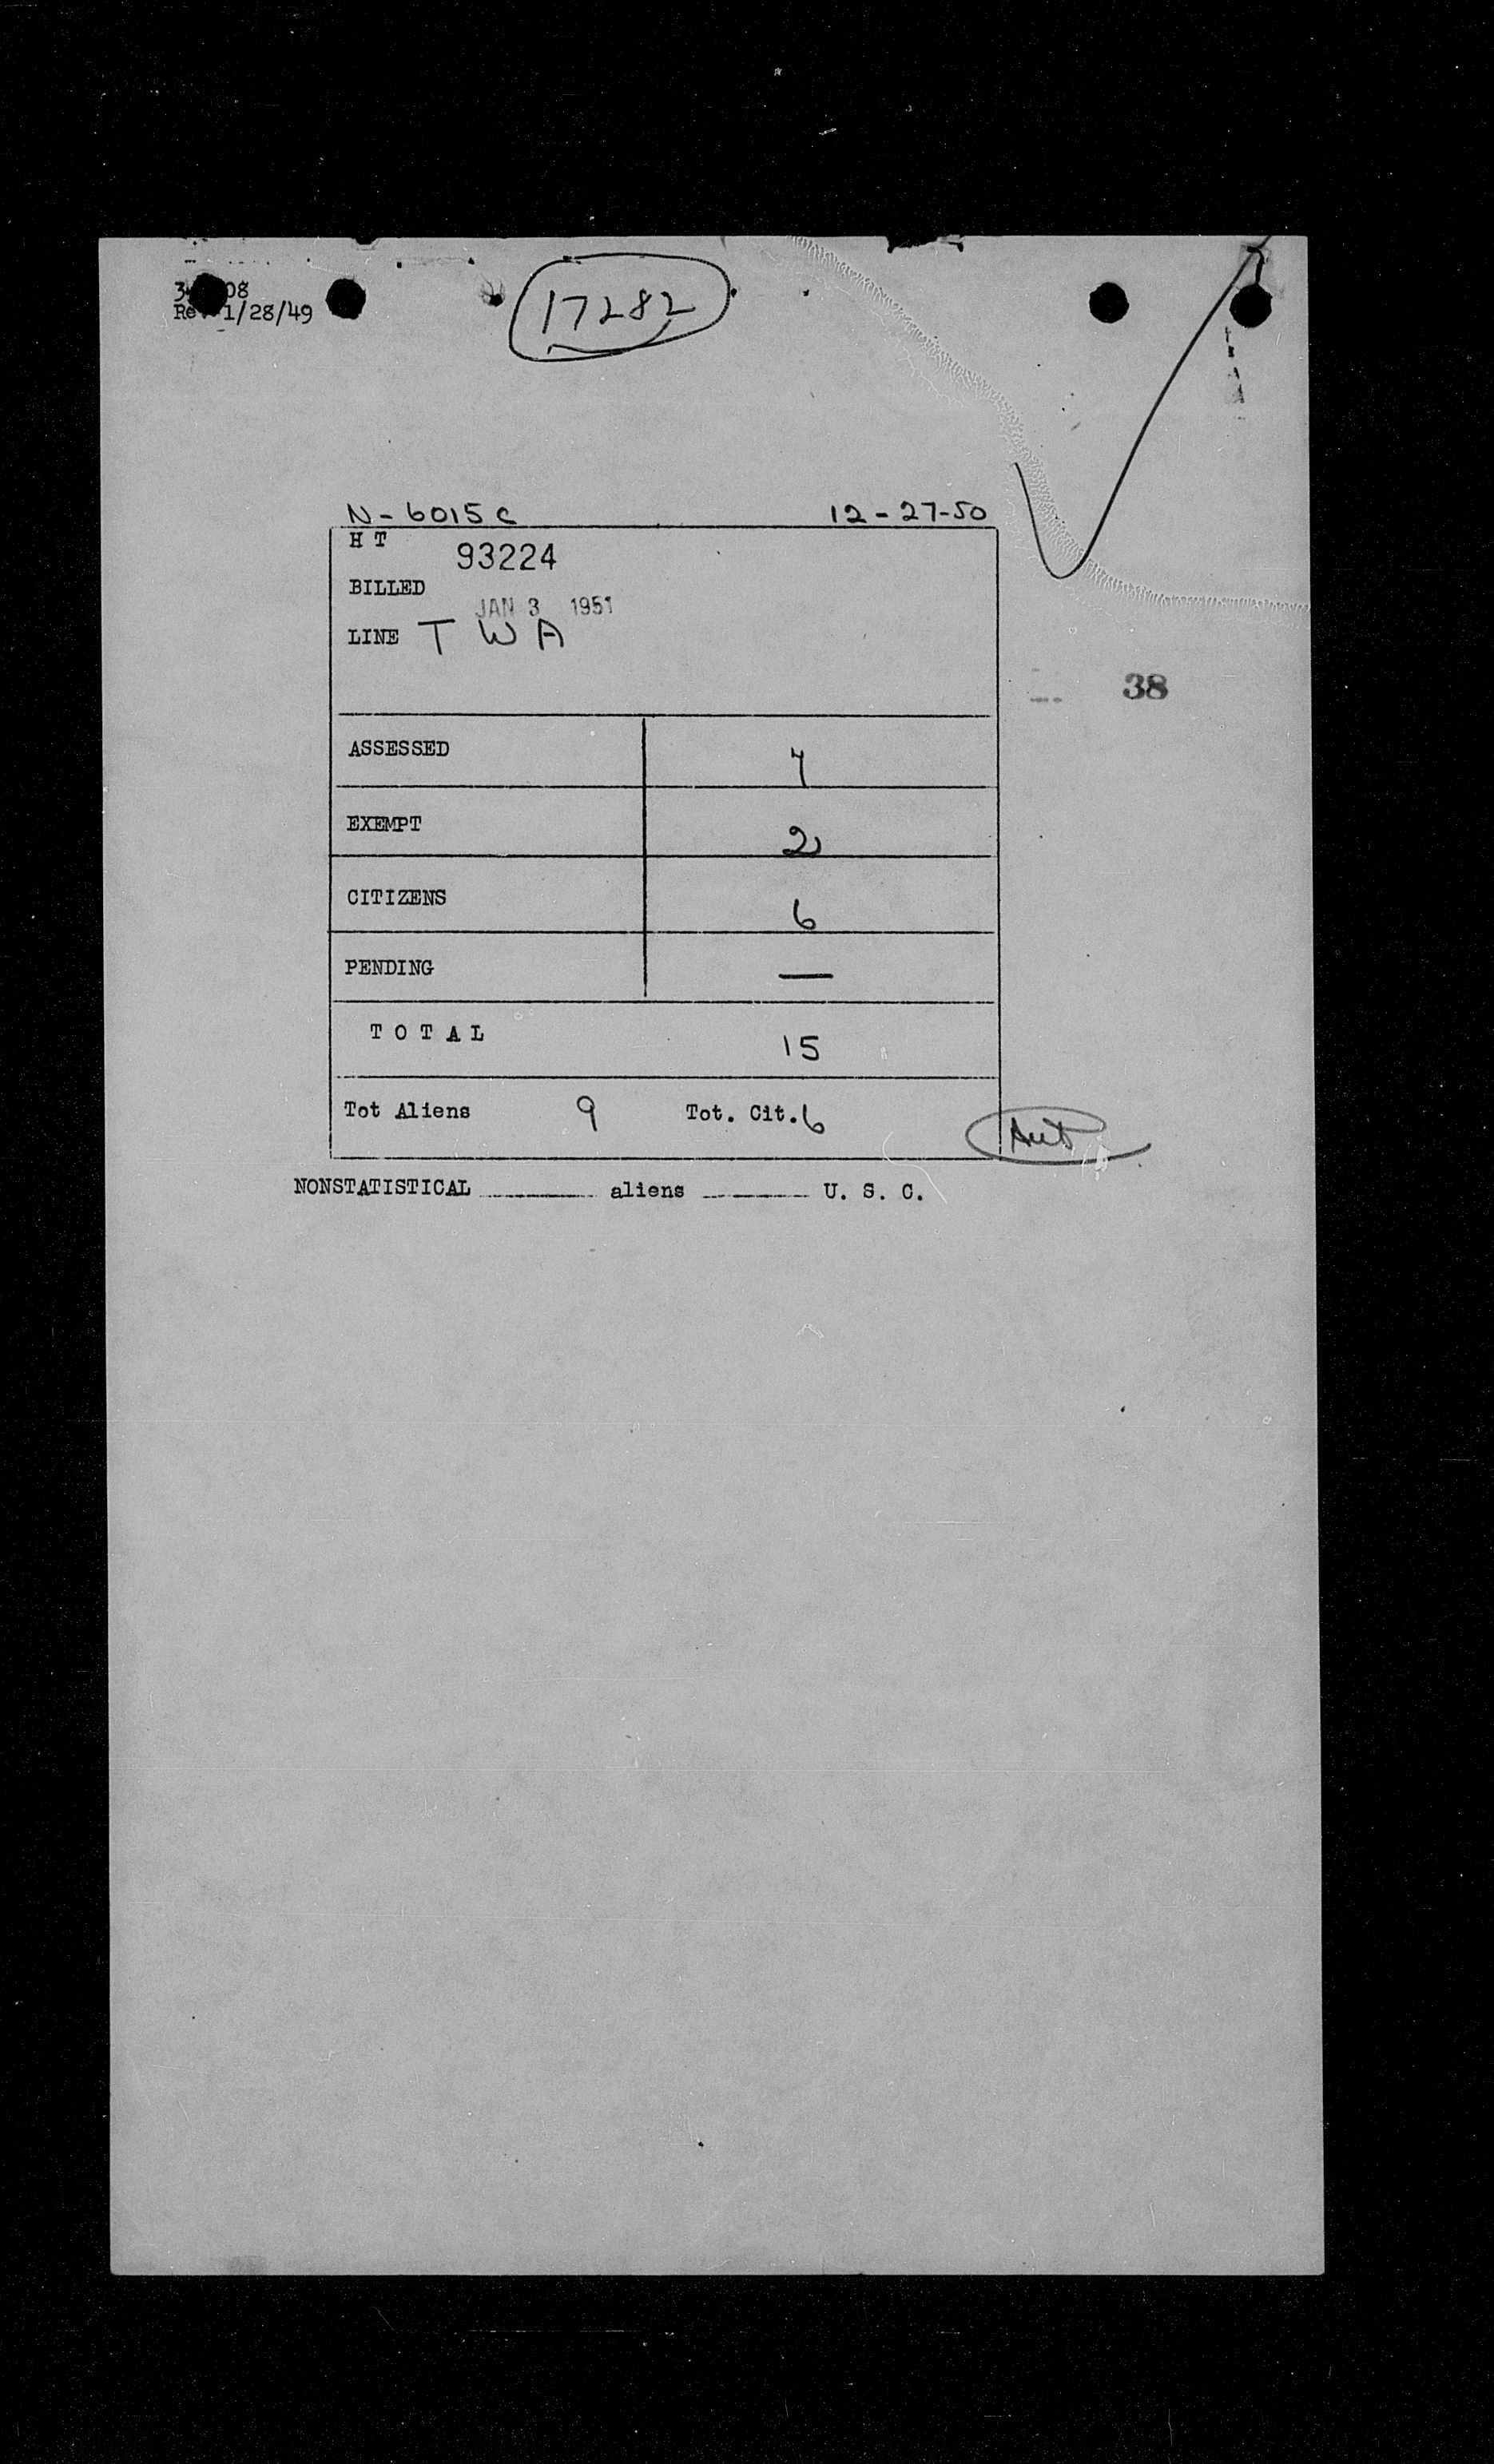 08
Rev. 1/28/49
17282
N-6015C 12-27-50
H T 93224
BILLED
JAN 3 1951
LINE T W A
38
ASSESSED 7
EXEMPT 2
CITIZENS 6
PENDING —
T O T A L 15
Tot Aliens 9 Tot. Cit. 6
NONSTATISTICAL ______ aliens ______ U. S. C.